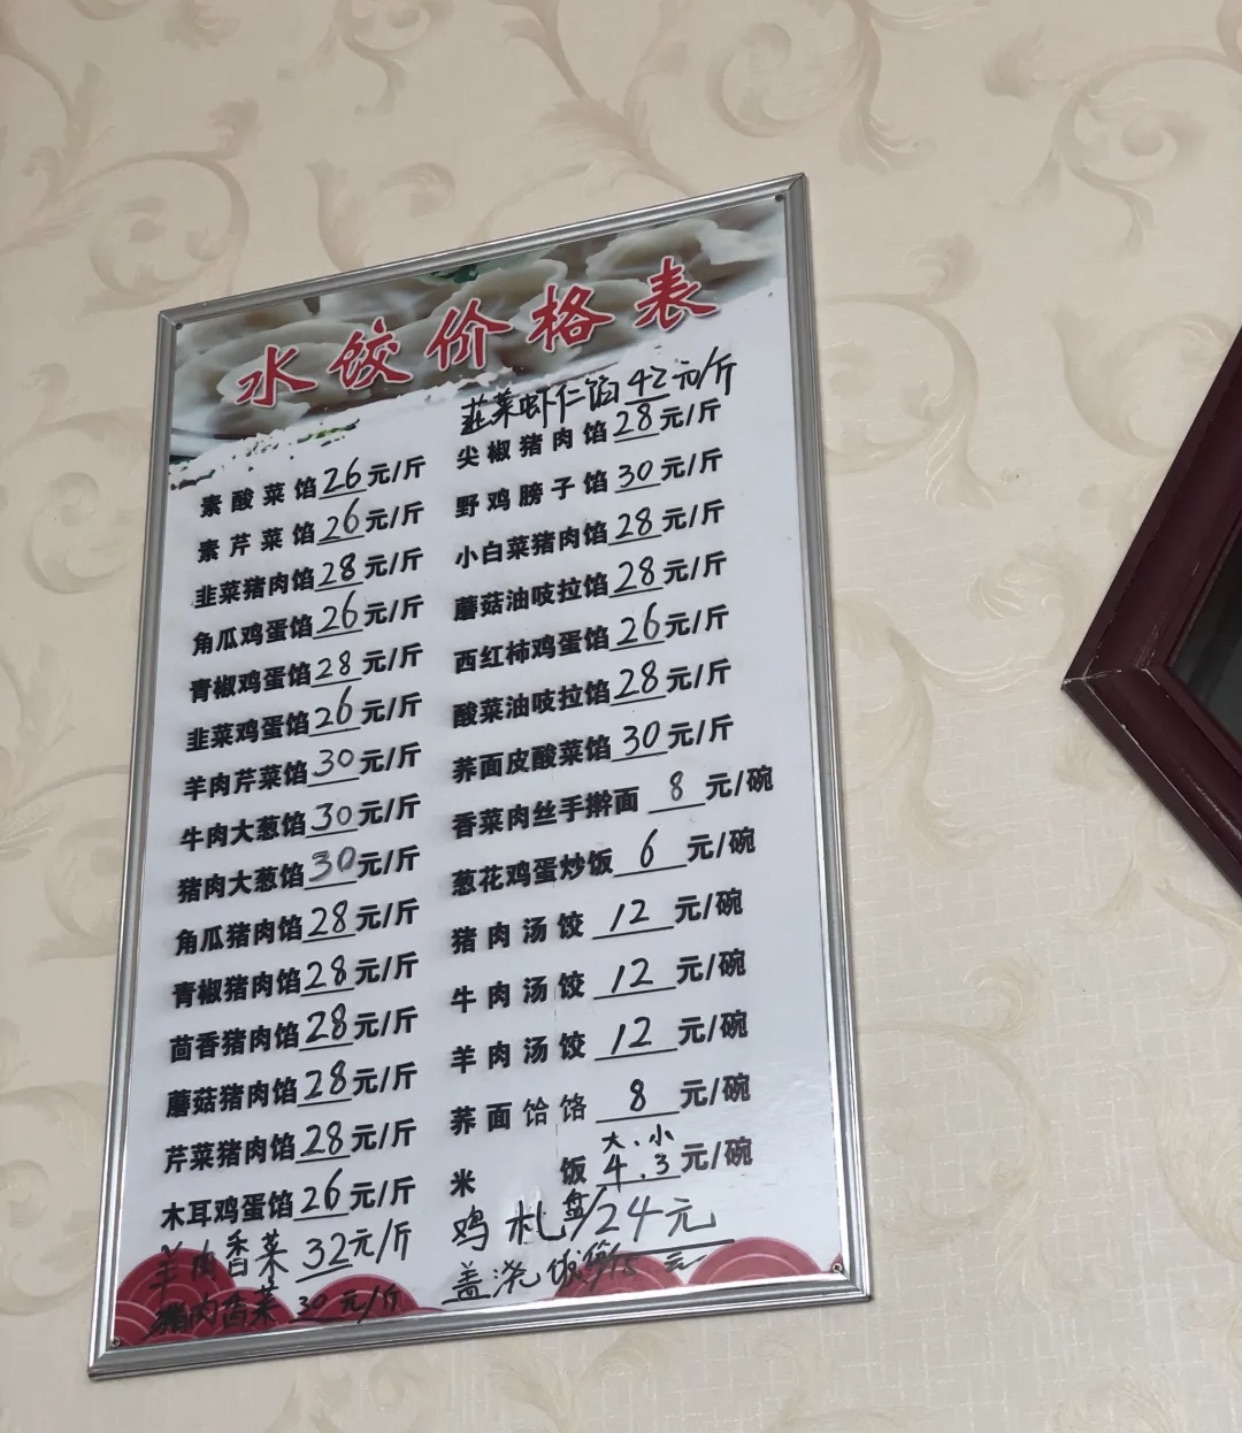 水饺价格表
素酸菜馅26元/斤
素芹菜馅26元/斤
韭菜猪肉馅28元/斤
角瓜鸡蛋馅26元/斤
青椒鸡蛋馅28元/斤
韭菜鸡蛋馅26元/斤
羊肉芹菜馅30元/斤
牛肉大葱馅30元/斤
猪肉大葱馅30元/斤
角瓜猪肉馅28元/斤
青椒猪肉馅28元/斤
茴香猪肉馅28元/斤
蘑菇猪肉馅28元/斤
芹菜猪肉馅28元/斤
木耳鸡蛋馅26元/斤
羊肉香菜32元/斤
猪肉香菜30元/斤
韭菜虾仁馅42元/斤
尖椒猪肉馅28元/斤
野鸡膀子馅30元/斤
小白菜猪肉馅28元/斤
蘑菇油吱拉馅28元/斤
西红柿鸡蛋馅26元/斤
酸菜油吱拉馅28元/斤
荞面皮酸菜馅30元/斤
香菜肉丝手擀面8元/碗
葱花鸡蛋炒饭6元/碗
猪肉汤饺12元/碗
牛肉汤饺12元/碗
羊肉汤饺12元/碗
荞面饸饹8元/碗
大.小
米饭4.3元/碗
鸡札盘/24元
盖浇饭份/15元